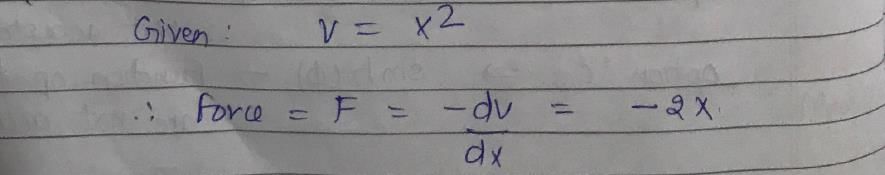 Given : v = x2
∴ force = F = -dv/dx = -2x.